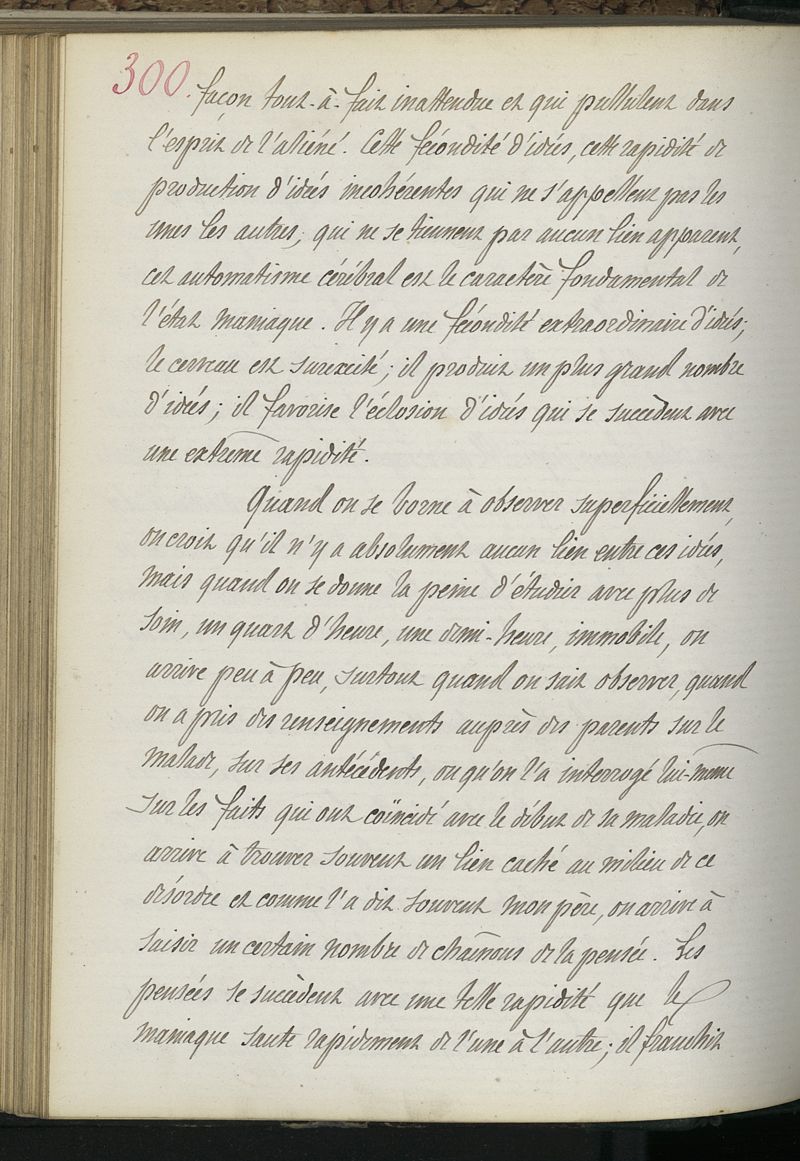 300.
façon tout-à-fait inattendue et qui pullulent dans
l'esprit de l'aliéné. Cette fécondité d'idées, cette rapidité de
production d'idées incohérentes qui ne s'appellent pas les
unes les autres, qui ne se tiennent par aucun lien apparent,
cet automatisme cérébral est le caractère fondamental de
l'état maniaque. Il y a une fécondité extraordinaire d'idées;
le cerveau est surexcité; il produit un plus grand nombre
d'idées; il favorise l'éclosion d'idées qui se succèdent avec
une extrême rapidité.
Quand on se borne à observer superficiellement,
on croit qu'il n'y a absolument aucun lien entre ces idées,
mais quand on se donne la peine d'étudier avec plus de
soin, un quart d'heure, une demi-heure, immobile, on
arrive peu à peu, surtout quand on sait observer, quand
on a pris des renseignements auprès des parents sur le
malade, sur ses antécédents, ou qu'on l'a interrogé lui-même
sur les faits qui ont coïncidé avec le début de sa maladie, on
arrive à trouver souvent un lien caché au milieu de ce
désordre et comme l'a dit souvent mon père, on arrive à
saisir un certain nombre de chaînons de la pensée. Les
pensées se succèdent avec une telle rapidité que le
maniaque saute rapidement de l'une à l'autre; il franchit